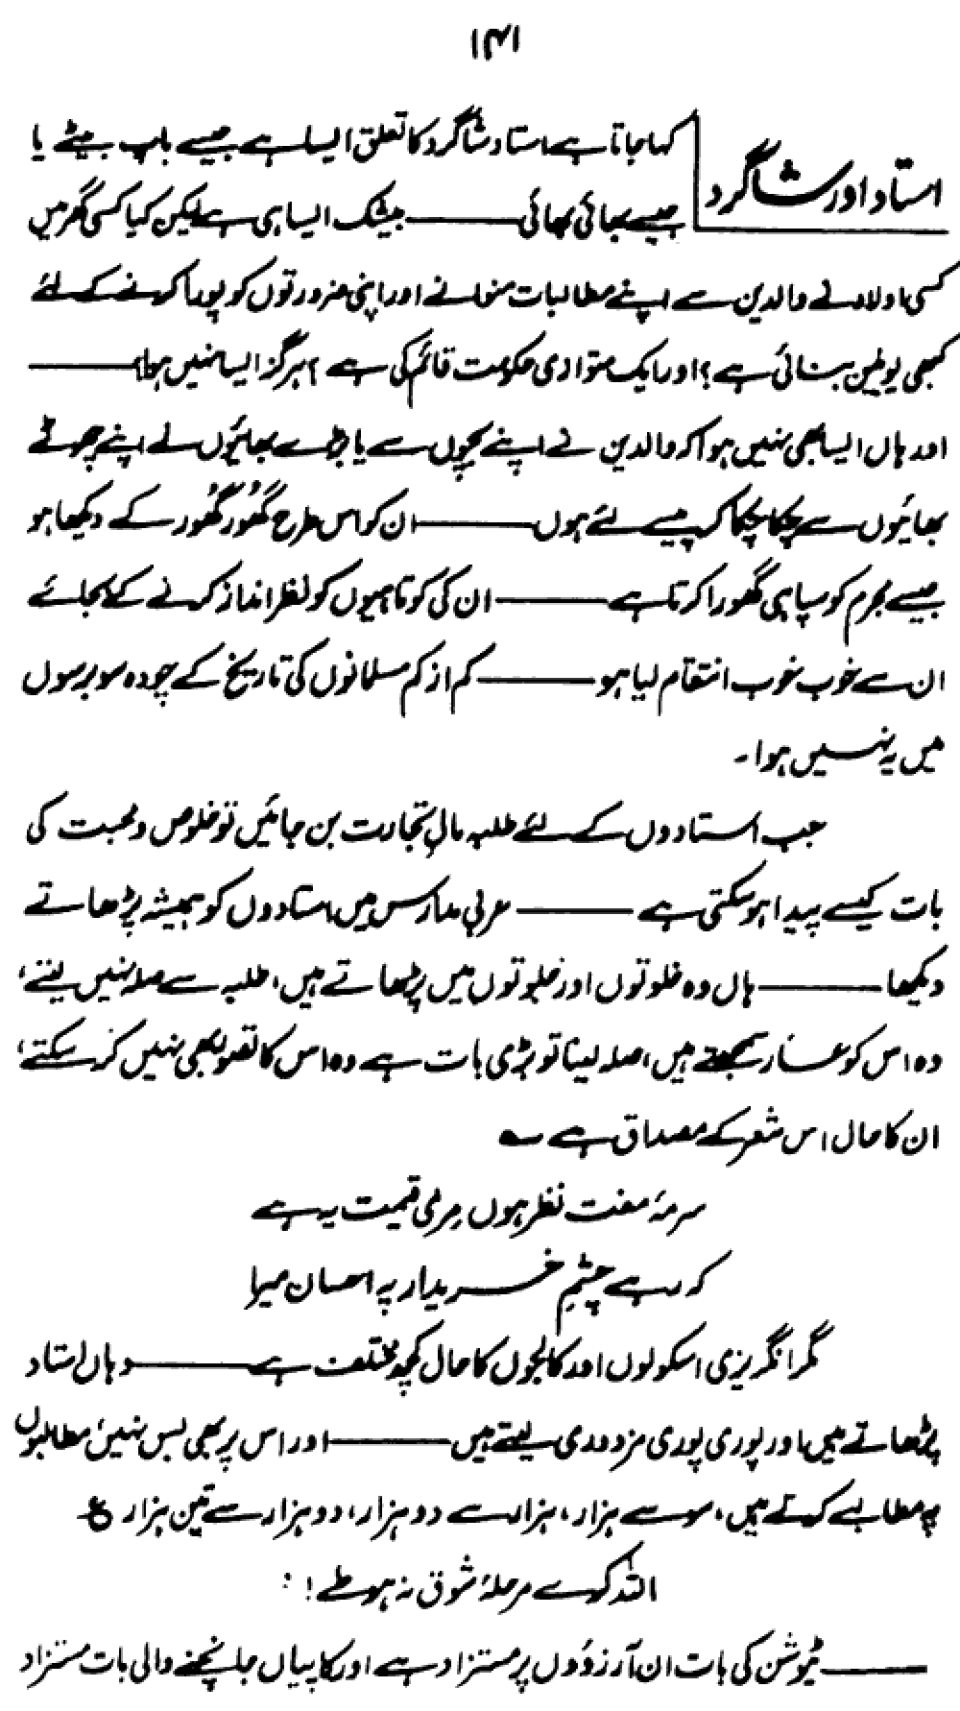 ۱۴۱
استاد اور شاگرد
کہا جاتا ہے استاد شاگرد کا تعلق ایسا ہے جیسے باپ بیٹے یا
جیسے بھائی بھائی ــــــ بیشک ایسا ہی ہے لیکن کیا کسی گھر میں
کسی اولاد نے والدین سے اپنے مطالبات منوانے اور اپنی ضرورتوں کو پورا کرنے کے لئے
کبھی یونین بنائی ہے؟ اور ایک متوازی حکومت قائم کی ہے؟ ہرگز ایسا نہیں ہوا! ــــــ
اور ہاں ایسا بھی نہیں ہوا کہ والدین نے اپنے بچوں سے یا بڑے بھائیوں نے اپنے چھوٹے
بھائیوں سے چکا چکا کر پیسے لئے ہوں ــــــ ان کو اس طرح گھُور گھُور کے دیکھا ہو
جیسے مجرم کو سپاہی گھورا کرتا ہے ــــــ ان کی کوتاہیوں کو نظر انداز کرنے کے بجائے
ان سے خوب خوب انتقام لیا ہو ــــــ کم از کم مسلمانوں کی تاریخ کے چودہ سو برسوں
میں یہ نہیں ہوا۔
جب استادوں کے لئے طلبہ مالِ تجارت بن جائیں تو خلوص و محبت کی
بات کیسے پیدا ہو سکتی ہے ــــــ عربی مدارس میں استادوں کو ہمیشہ پڑھاتے
دیکھا ــــــ ہاں وہ خلوتوں اور جلوتوں میں پڑھاتے ہیں، طلبہ سے صلہ نہیں لیتے،
وہ اس کو عار سمجھتے ہیں، صلہ لینا تو بڑی بات ہے وہ اس کا تصور بھی نہیں کر سکتے،
ان کا حال اس شعر کے مصداق ہے ؎
سرمۂ مفت نظر ہوں مِری قیمت یہ ہے
کہ رہے چشمِ خریدار پہ احسان میرا
مگر انگریزی اسکولوں اور کالجوں کا حال کچھ مختلف ہے ــــــ وہاں استاد
پڑھاتے ہیں اور پوری پوری مزدوری لیتے ہیں ــــــ اور اس پر بھی بس نہیں، مطالبوں
پر مطالبے کرتے ہیں، سو سے ہزار، ہزار سے دو ہزار، دو ہزار سے تین ہزار ع
اللہ کرے مرحلۂ شوق نہ ہو طے! :
ــــــ ٹیوشن کی بات ان آرزؤوں پر مستزاد ہے اور کاپیاں جانچنے والی بات مستزاد